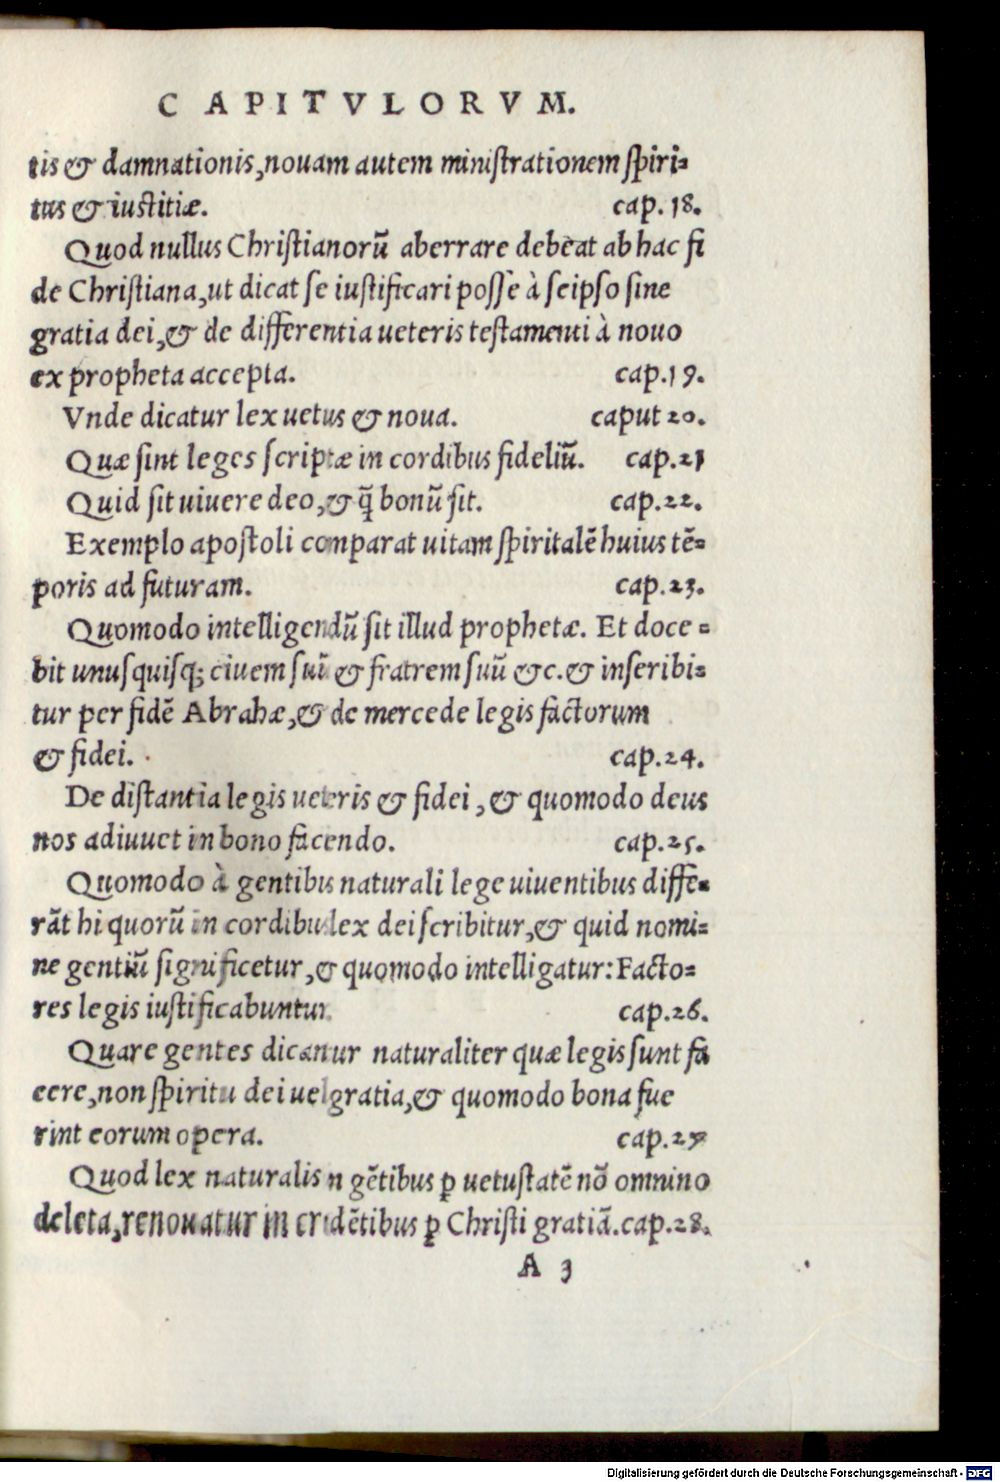 CAPITVLORVM.
tis & damnationis, nouam autem ministrationem spiri-
tus & iustitiæ. cap. 18.
Quod nullus Christianorū aberrare debeat ab hac fi
de Christiana, ut dicat se iustificari posse à seipso sine
gratia dei, & de differentia ueteris testamenti à nouo
ex propheta accepta. cap.19.
Vnde dicatur lex uetus & noua. caput 20.
Quæ sint leges scriptæ in cordibus fideliū. cap.21
Quid sit uiuere deo, & q̄ bonū sit. cap.22.
Exemplo apostoli comparat uitam spiritalē huius tē-
poris ad futuram. cap.23.
Quomodo intelligendū sit illud prophetæ. Et doce-
bit unusquisq; ciuem suū & fratrem suū &c. & inseribi-
tur per fidē Abrahæ, & de mercede legis factorum
& fidei. cap.24.
De distantia legis ueteris & fidei, & quomodo deus
nos adiuuet in bono facendo. cap.25.
Quomodo à gentibus naturali lege uiuentibus diffe-
rāt hi quorū in cordibus lex dei scribitur, & quid nomi-
ne gentiū significetur, & quomodo intelligatur: Facto-
res legis iustificabuntur. cap.26.
Quare gentes dicantur naturaliter quæ legis sunt fa
cere, non spiritu dei uel gratia, & quomodo bona fue
rint eorum opera. cap.27
Quod lex naturalis n gētibus ꝑ uetustatē nō omnino
deleta, renouatur in credētibus ꝑ Christi gratiā. cap.28.
A 3
Digitalisierung gefördert durch die Deutsche Forschungsgemeinschaft - DFG